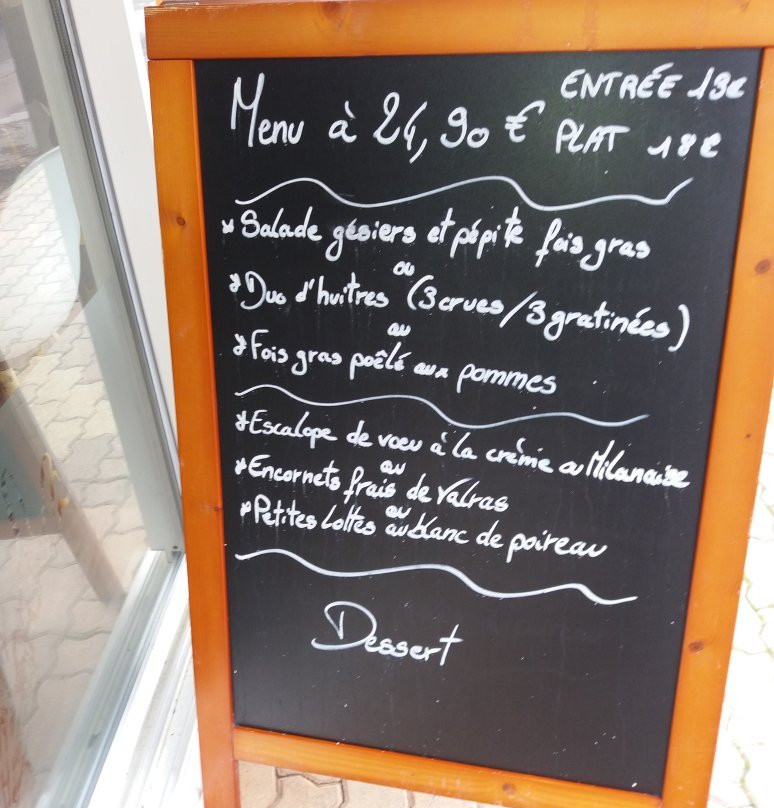 Menu à 24,90 € ENTRÉE 13€
PLAT 18€
* Salade gésiers et pépite fois gras
ou
* Duo d'huîtres (3 crues/3 gratinées)
ou
* Fois gras poêlé aux pommes
* Escalope de voeu à la crème ou Milanaise
ou
* Encornets frais de Valras
ou
* Petites lottes au blanc de poireau
Dessert